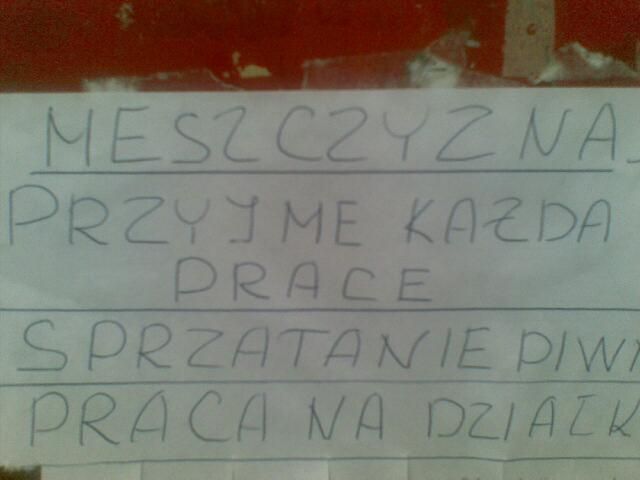 MESZCZYZNA
PRZYJME KAŻDA
PRACE
SPRZATANIE PIW
PRACA NA DZIAŁK